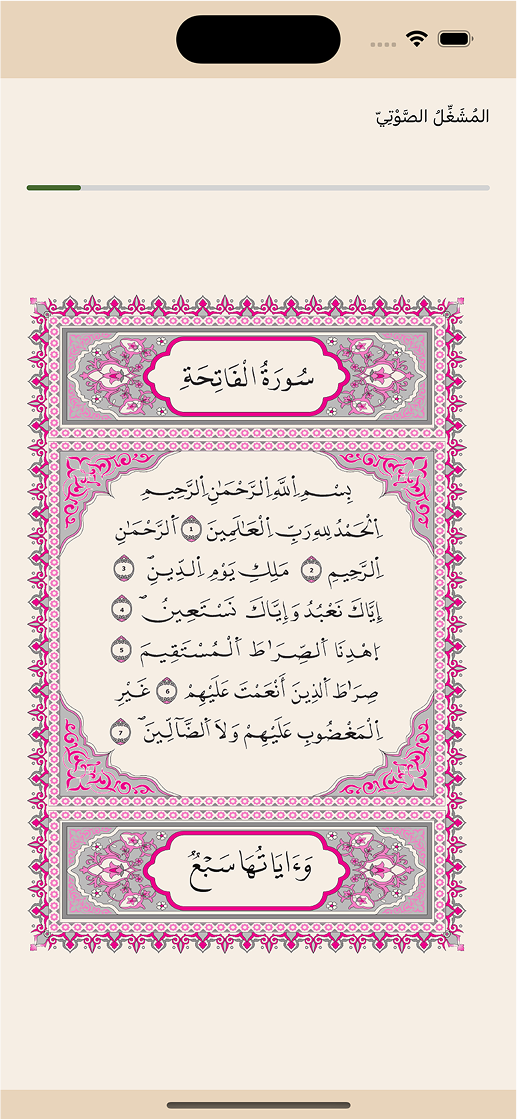 المُشَغِّلُ الصَّوْتِيّ
سُورَةُ الْفَاتِحَةِ
بِسْمِ اِ۬للَّهِ اِ۬لرَّحْمَٰنِ اِ۬لرَّحِيمِ
اِ۬لْحَمْدُ لِلهِ رَبِّ اِ۬لْعَٰلَمِينَ 1 اَ۬لرَّحْمَٰنِ
اِ۬لرَّحِيمِ 2 مَلِكِ يَوْمِ اِ۬لدِّينِ 3
إِيَّاكَ نَعْبُدُ وَإِيَّاكَ نَسْتَعِينُ 4
اِ۪هْدِنَا اَ۬لصِّرَٰطَ اَ۬لْمُسْتَقِيمَ 5
صِرَٰطَ اَ۬لذِينَ أَنْعَمْتَ عَلَيْهِمْ 6 غَيْرِ
اِ۬لْمَغْضُوبِ عَلَيْهِمْ وَلَا اَ۬لضَّآلِّينَ 7
وَءَايَاتُهَا سَبْعٌ